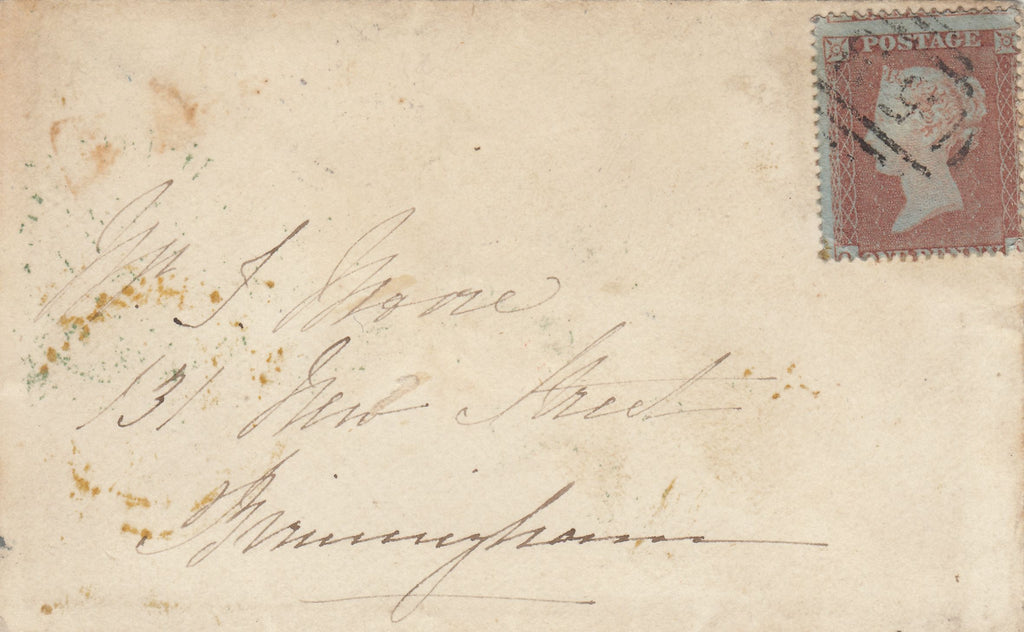 POSTAGE
J Moore
131 New Street
Birmingham